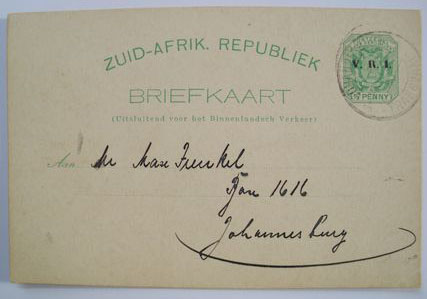 ZUID-AFRIK. REPUBLIEK
V. R. I.
PENNY
BRIEFKAART
(Uitsluitend voor het Binnenlandsch Verkeer)
Aan Mr Max Frenkel
Box 1616
Johannesburg